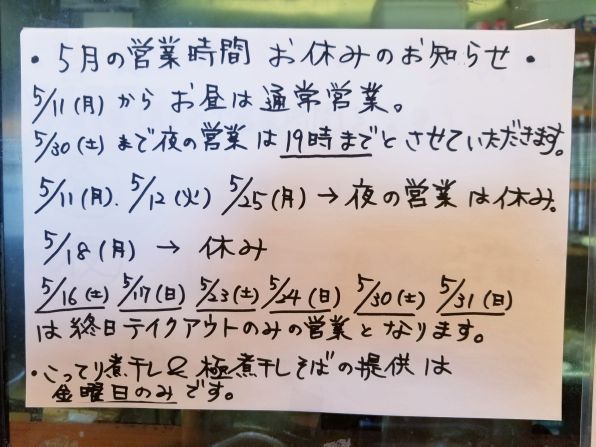 ・5月の営業時間 お休みのお知らせ・
5/11(月)からお昼は通常営業。
5/30(土)まで夜の営業は19時までとさせていただきます。
5/11(月).5/12(火) 5/25(月)→夜の営業は休み.
5/18(月) → 休み
5/16(土) 5/17(日) 5/23(土) 5/24(日) 5/30(土) 5/31(日)
は終日テイクアウトのみの営業となります。
・こってり煮干し&極煮干しそばの提供は
金曜日のみです。